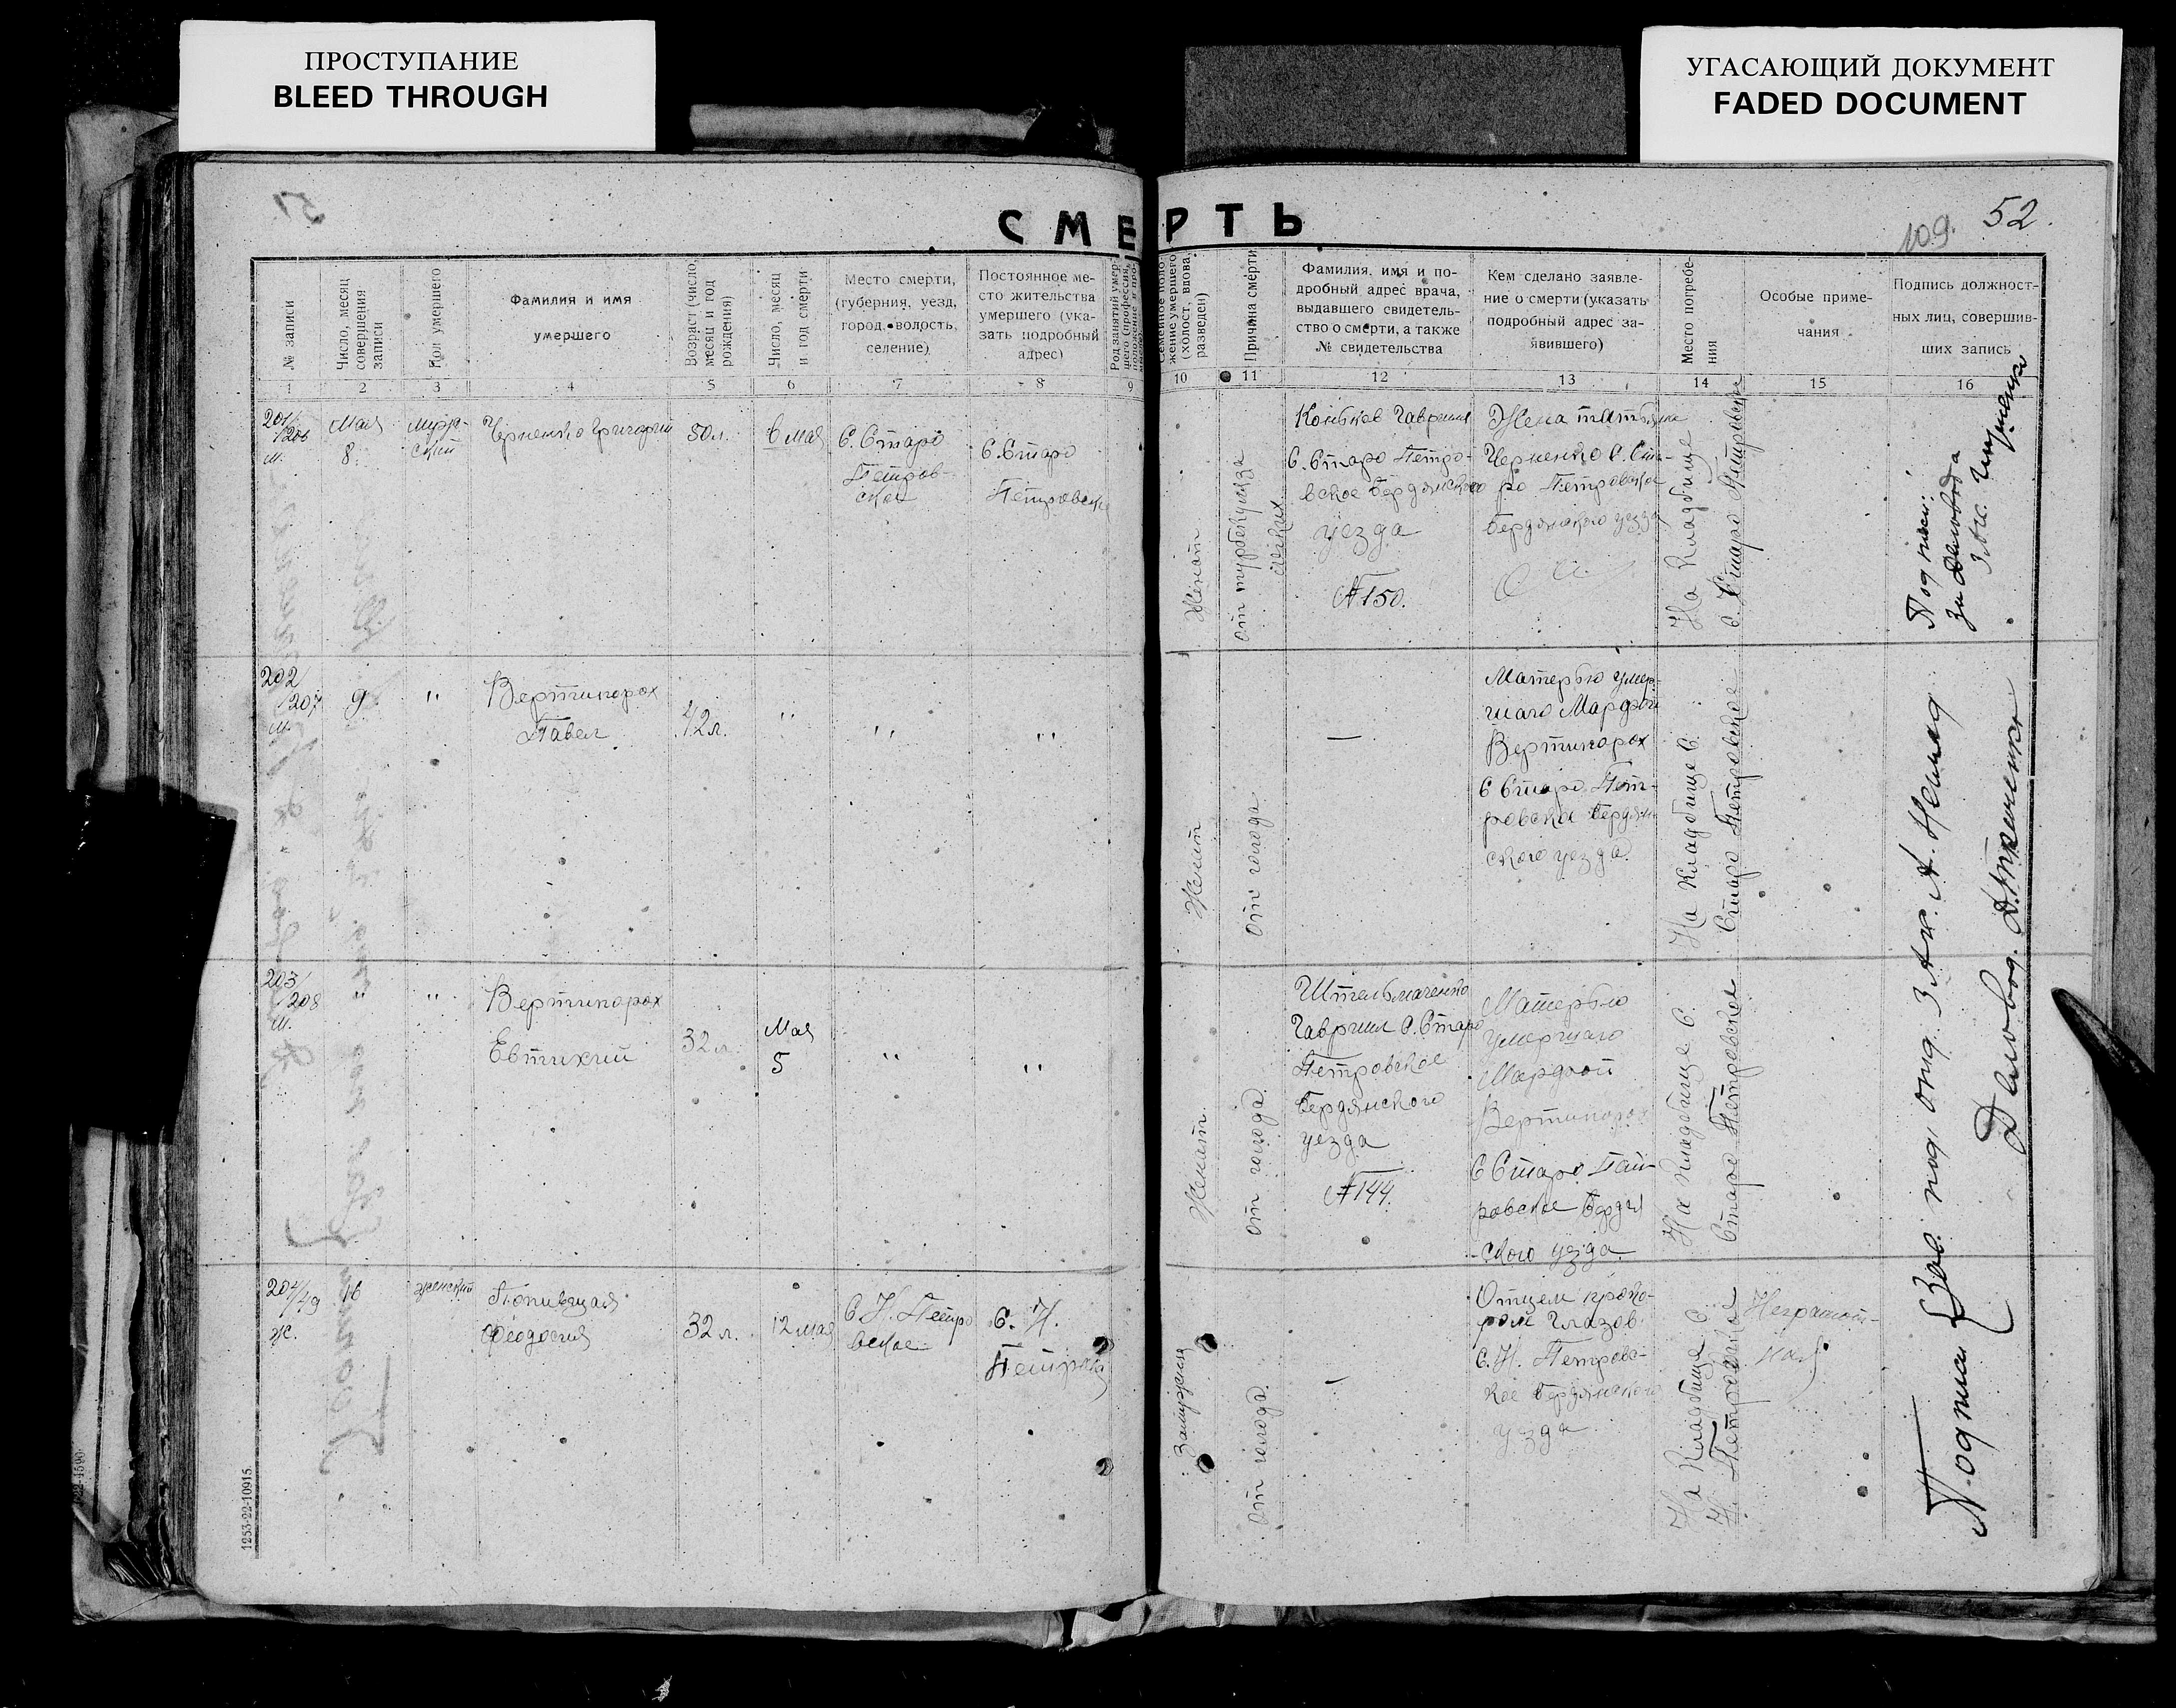 ПРОСТУПАНИЕ
BLEED THROUGH
УГАСАЮЩИЙ ДОКУМЕНТ
FADED DOCUMENT
51
109. 52.
СМЕРТЬ
№ записи
Число, месяц
совершения
записи
Пол умершего
Фамилия и имя
умершего
Возраст (число,
месяц и год
рождения)
Число, месяц
и год смерти
Место смерти,
(губерния, уезд,
город, волость,
селение)
Постоянное ме-
сто жительства
умершего (ука-
зать подробный
адрес)
Род занятий умер-
шего (профессия,
Семейное поло-
жение умершего
(холост, вдова,
разведен)
Причина смерти
Фамилия, имя и по-
дробный адрес врача,
выдавшего свидетель-
ство о смерти, а также
№ свидетельства
Кем сделано заявле-
ние о смерти (указать
подробный адрес за-
явившего)
Место погребе-
ния
Особые приме-
чания
Подпись должност-
ных лиц, совершив-
ших запись
1 2 3 4 5 6 7 8 9 10 11 12 13 14 15 16
201/
206
м.
Мая
8
Муж-
ской
Черненко Григорий
50 л.
6 мая
С. Старо
Петров-
ское
С. Старо
Петровское
Женат
От туберкулеза
легких
Гавриил
С. Старо Петро-
вское Бердянского
уезда
№ 150.
Жена Татьяна
Черненко С. Ста-
ро Петровское
Бердянского уезда
На кладбище
С. Старо Петровское
202
207
м.
9
"
Вертипорох
Павел
42 л.
"
"
"
Женат
От голода
—
Матерью умер-
шаго Марфой
Вертипорох
С Старо Пет-
ровска Бердян-
ского уезда.
На кладбище С.
Старо Петровское
203
208
м.
"
"
Вертипорох
Евтихий
32 л.
Мая
5
"
"
Женат.
От голода.
Штельмаченко
Гавриил С. Старо
Петровское
Бердянского
уезда
№ 144.
Матерью
умершаго
Марфой
Вертипорох
С Старо Пет-
ровское Бердян
ского уезда.
На кладбище С.
Старо Петровское
204/49
ж.
16
женский
Феодосия
32 л.
12 мая
С Н. Петро
вское
С. Н.
Петровск
Замужняя
От голода.
—
Отцем Проко-
ром Глазов
С. Н. Петровс-
кое Бердянского
уезда
На кладбище С.
Н. Петровское
Неграмот-
ная
Подписи
Зав. под. отд. ЗАГС. А.
Деловод.
1253-22-10915